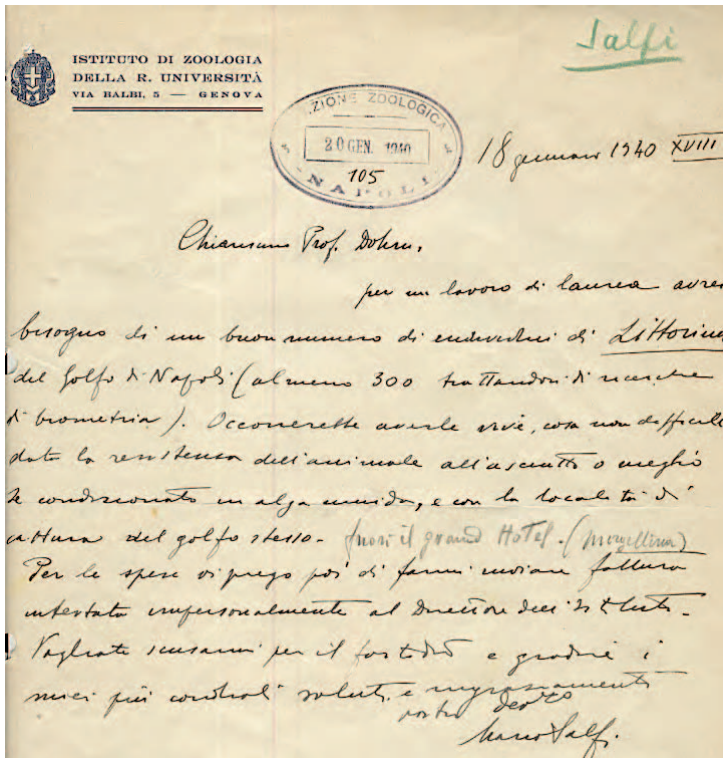 Salfi
ISTITUTO DI ZOOLOGIA
DELLA R. UNIVERSITÀ
VIA BALBI, 5 — GENOVA
ZIONE ZOOLOGICA
20 GEN. 1940
105
NAPOLI
18 gennaio 1940 XVIII
Chiarissimo Prof. Dohrn,
per un lavoro di laurea avrei
bisogno di un buon numero di individui di Littorina
del Golfo di Napoli (almeno 300 trattandosi di ricerche
di biometria). Occorrerebbe averle vive, cosa non difficile
data la resistenza dell'animale all'asciutto o meglio
se condizionato in alga umida, e con la località di
cattura del golfo stesso. fuori il grand Hotel. (Mergellina)
Per le spese vi prego poi di farmi inviare fattura
intestata impersonalmente al Direttore dell'Istituto.
Vogliate scusarmi per il fastidio e gradire i
miei più cordiali saluti e ringraziamenti
vostro dev.mo
Mario Salfi.